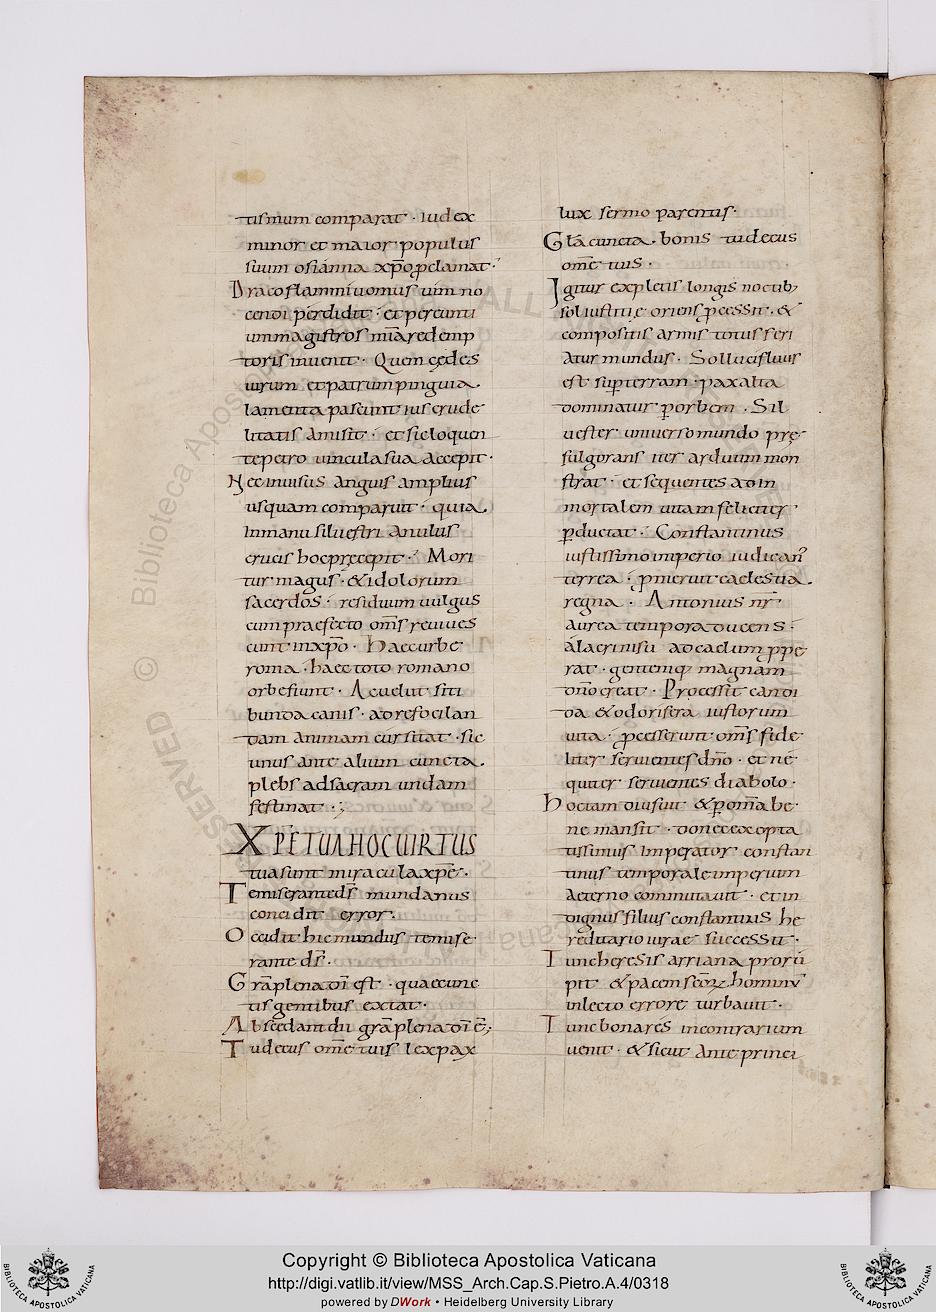 tismum comparat · iudex
minor et maior populus
suum osianna xpo pclamat ·
Draco flammiuomus uim no
cendi perdidit · et pereunti
um magistros miaredemp
toris inuenit · Quem cędes
uirum et patrum pinguia
lamenta pascunt ius crude
litatis amisit · et sic loquen
te petro uincula sua accepit ·
Nec inuisus anguis amplius
usquam comparuit · quia
in manu siluestri anulus
crucis hoc pręcepit · Mori
tur magus · & idolorum
sacerdos · residuum uulgus
cum praefecto om̄s reuiues
cunt in xp̄o · Haec urbe
roma · haec toto romano
orbe fiunt · Ac uelut siti
bunda canis · ad refocilan
dam animam cursitat · sic
unus ante alium cuncta
plebs ad sacram undam
festinat ·
XPE TUA HOC UIRTUS
tua sunt miracula xpe ·
Te miserante ds mundanus
concidit error ·
Occidit hic mundus te mise
rante ds ·
Gra plena di est · quaecunc
tis gentibus extat ·
Abscedant dii gra plena di ē;
Tu decus om̄e tuis lex pax
lux sermo parentis ·
Gla cuncta · bonis tu decus
om̄e tuis ·
Igitur expletis longis noctib;
sol iustitię oriens pcessit · &
compositis armis totus feri
atur mundus · Sol lucifluus
est sup terram · pax alta
dominatur p orbem · Sil
uester uniuerso mundo prę
fulgorans iter arduum mon
strat · et sequentes ad in
mortalem uitam feliciter
pducat · Constantinus
iustissimo imperio iudicans
terrea · pmeruit caelestia
regna · Antonius nr
aurea tempora ducens ·
alacri nisu ad caelum ppe
rat · gentemq; magnam
dno creat · Processit candi
da & odorifera iustorum
uita · pcesserunt om̄s fide
liter seruientes dno · et ne
quiter seruientes diabolo ·
Hoc tam diu fuit & p om̄a be
ne mansit · donec exopta
tissimus imperator constan
tinus temporale imperium
aeterno commutauit · et in
dignus filius constantius he
reditario iure successit ·
Tunc heresis arriana prorū
pit & pacem scōrum hominum
inlecto errore turbauit ·
Tunc bonares in contrarium
uenit · & sicut ante princi
Copyright © Biblioteca Apostolica Vaticana
http://digi.vatlib.it/view/MSS_Arch.Cap.S.Pietro.A.4/0318
powered by DWork • Heidelberg University Library